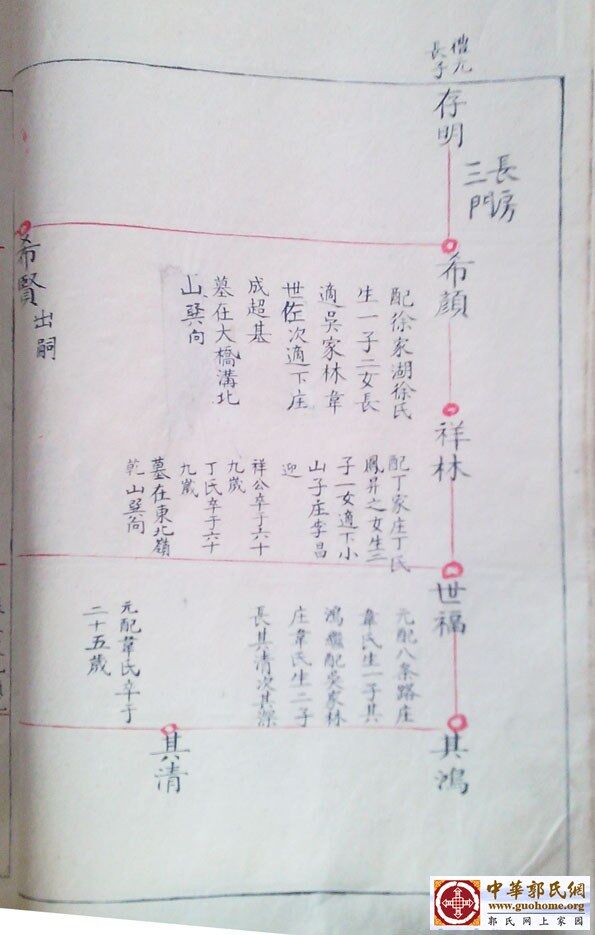 儅九
長子
存明
長房
三門
希顔
配徐家湖徐氏
生一子二女長
適吳家林韋
世佐次適下庄
成超基
墓在大橋溝北
山巽向
希賢
出嗣
祥林
配丁家庄丁氏
鳳昇之女生二
子一女適下小
山子庄李昌
迎
祥公卒于六十
九歲
丁氏卒于六十
九歲
墓在東北嶺
乾山巽向
世福
元配八条路庄
韋氏生一子其
鴻繼配吳家林
庄韋氏生二子
長其清次其源
元配韋氏卒于
二十五歲
其鴻
其清
中華郭氏網
www.guohome.org
郭氏网上家园